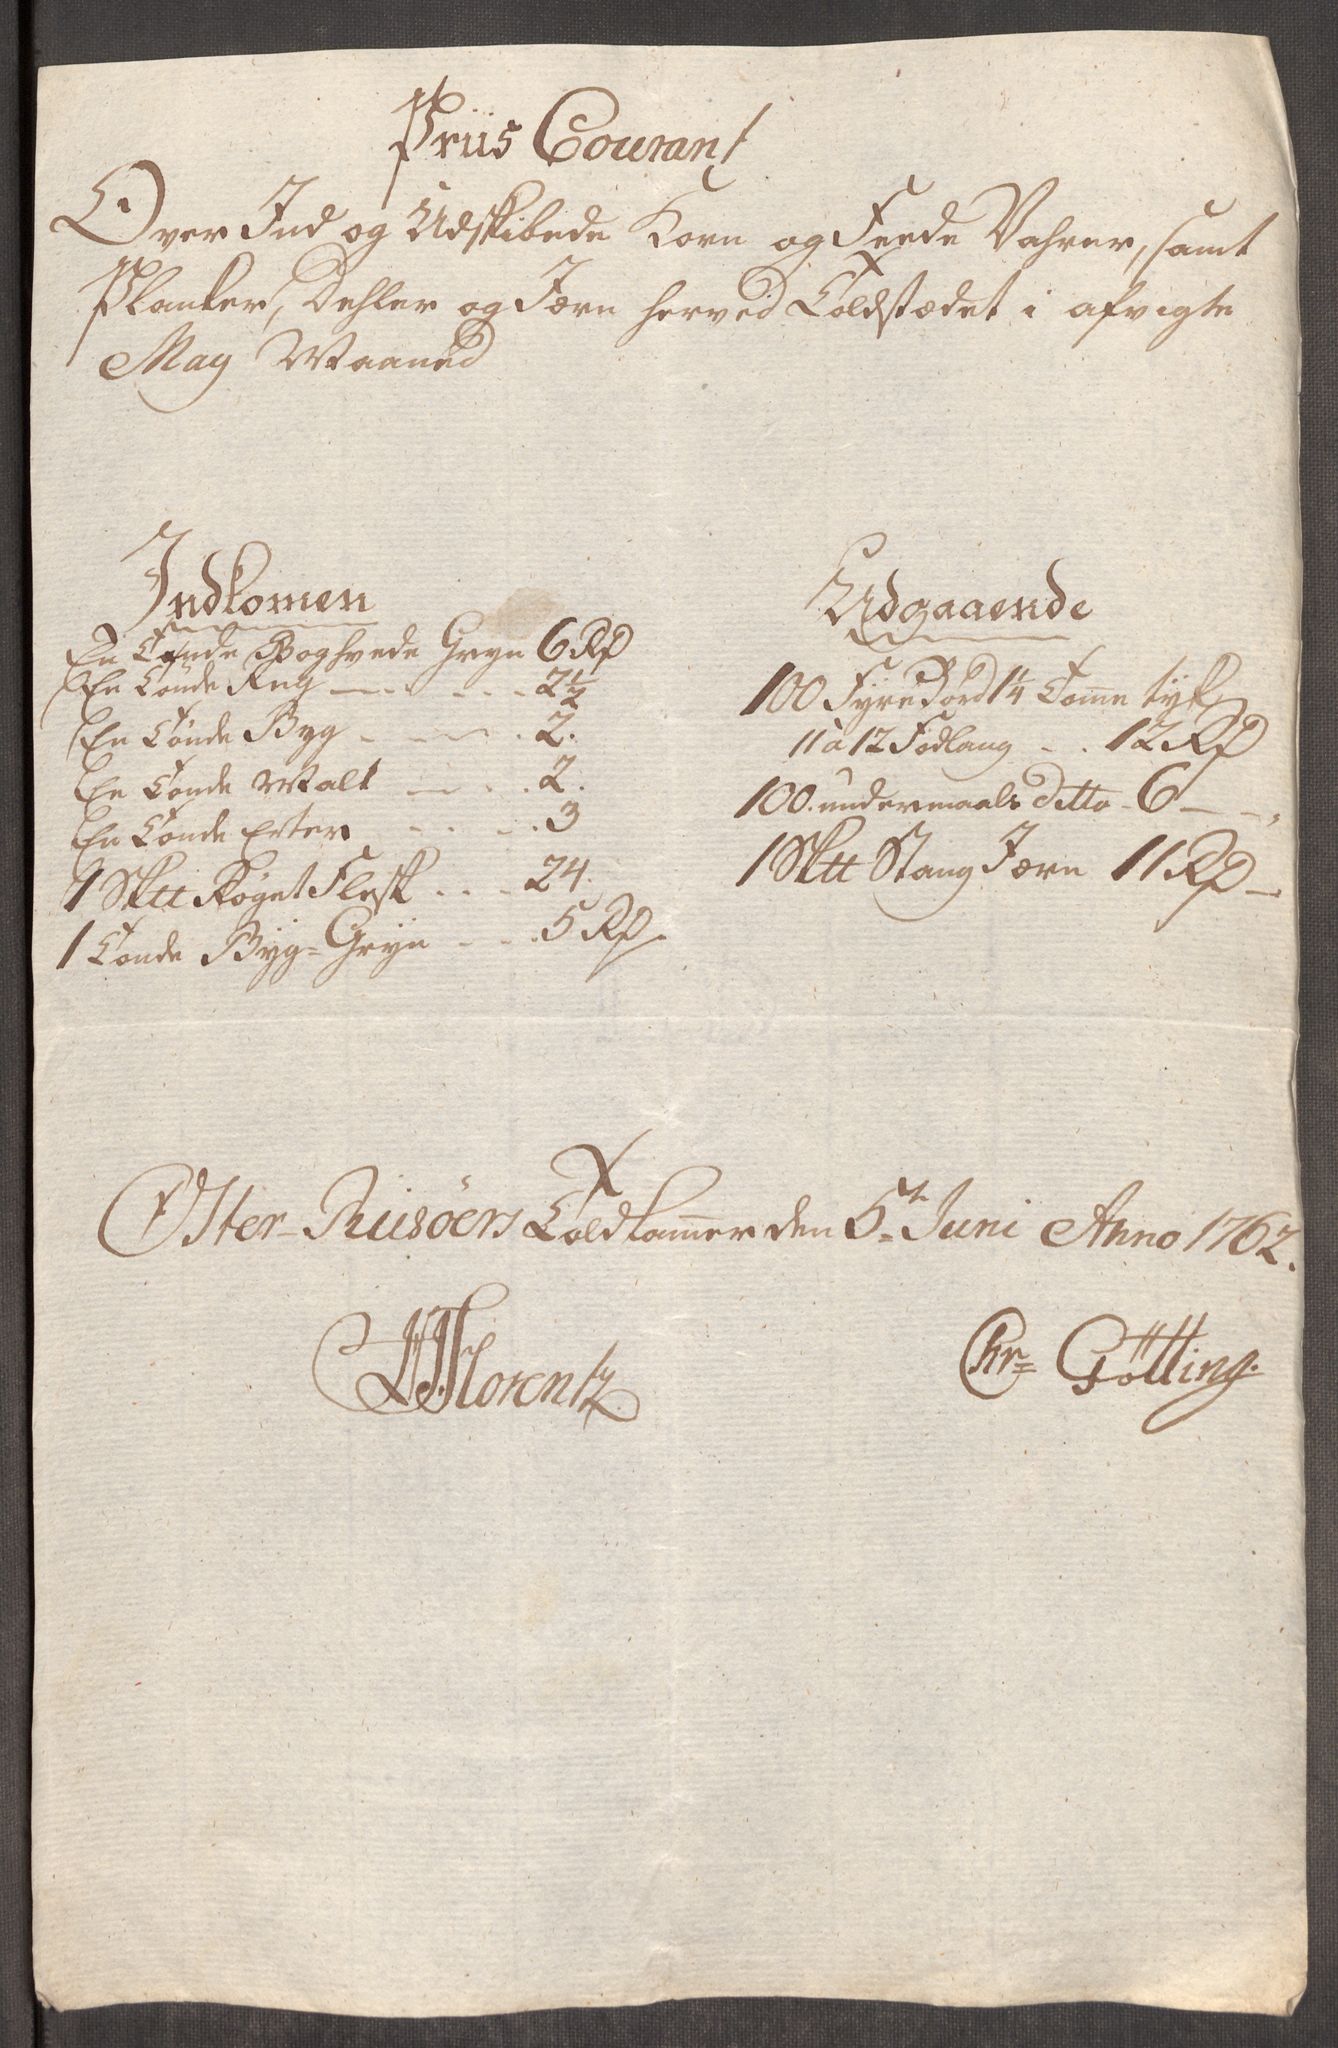 Priis Courant
Over Ind og Udskibede Korn og Feede Vahrer, samt
Planker, Dehler og Jærn herved Toldstædet i afvigte
May Maaned
Indkomen
En Tønde Boghvede Gryn 6 Rd
En Tønde Rug 2 1/2
En Tønde Byg 2.
En Tønde Malt 2.
En Tønde Erter 3
1 Sktt Røget Flesk 24.
1 Tønde Byg-Gryn 5 Rd.
Udgaaende
100 Fyre Bord 1 1/4 Tomme tyk
11 a 12 Fod lang 12 Rd
100. undermaals ditto 6
1 Sktt Stang Jærn 11 Rd
Øster-Riisøers Toldkammer den 5te Juni Anno 1762.
Lorentz
Chr= Götting.